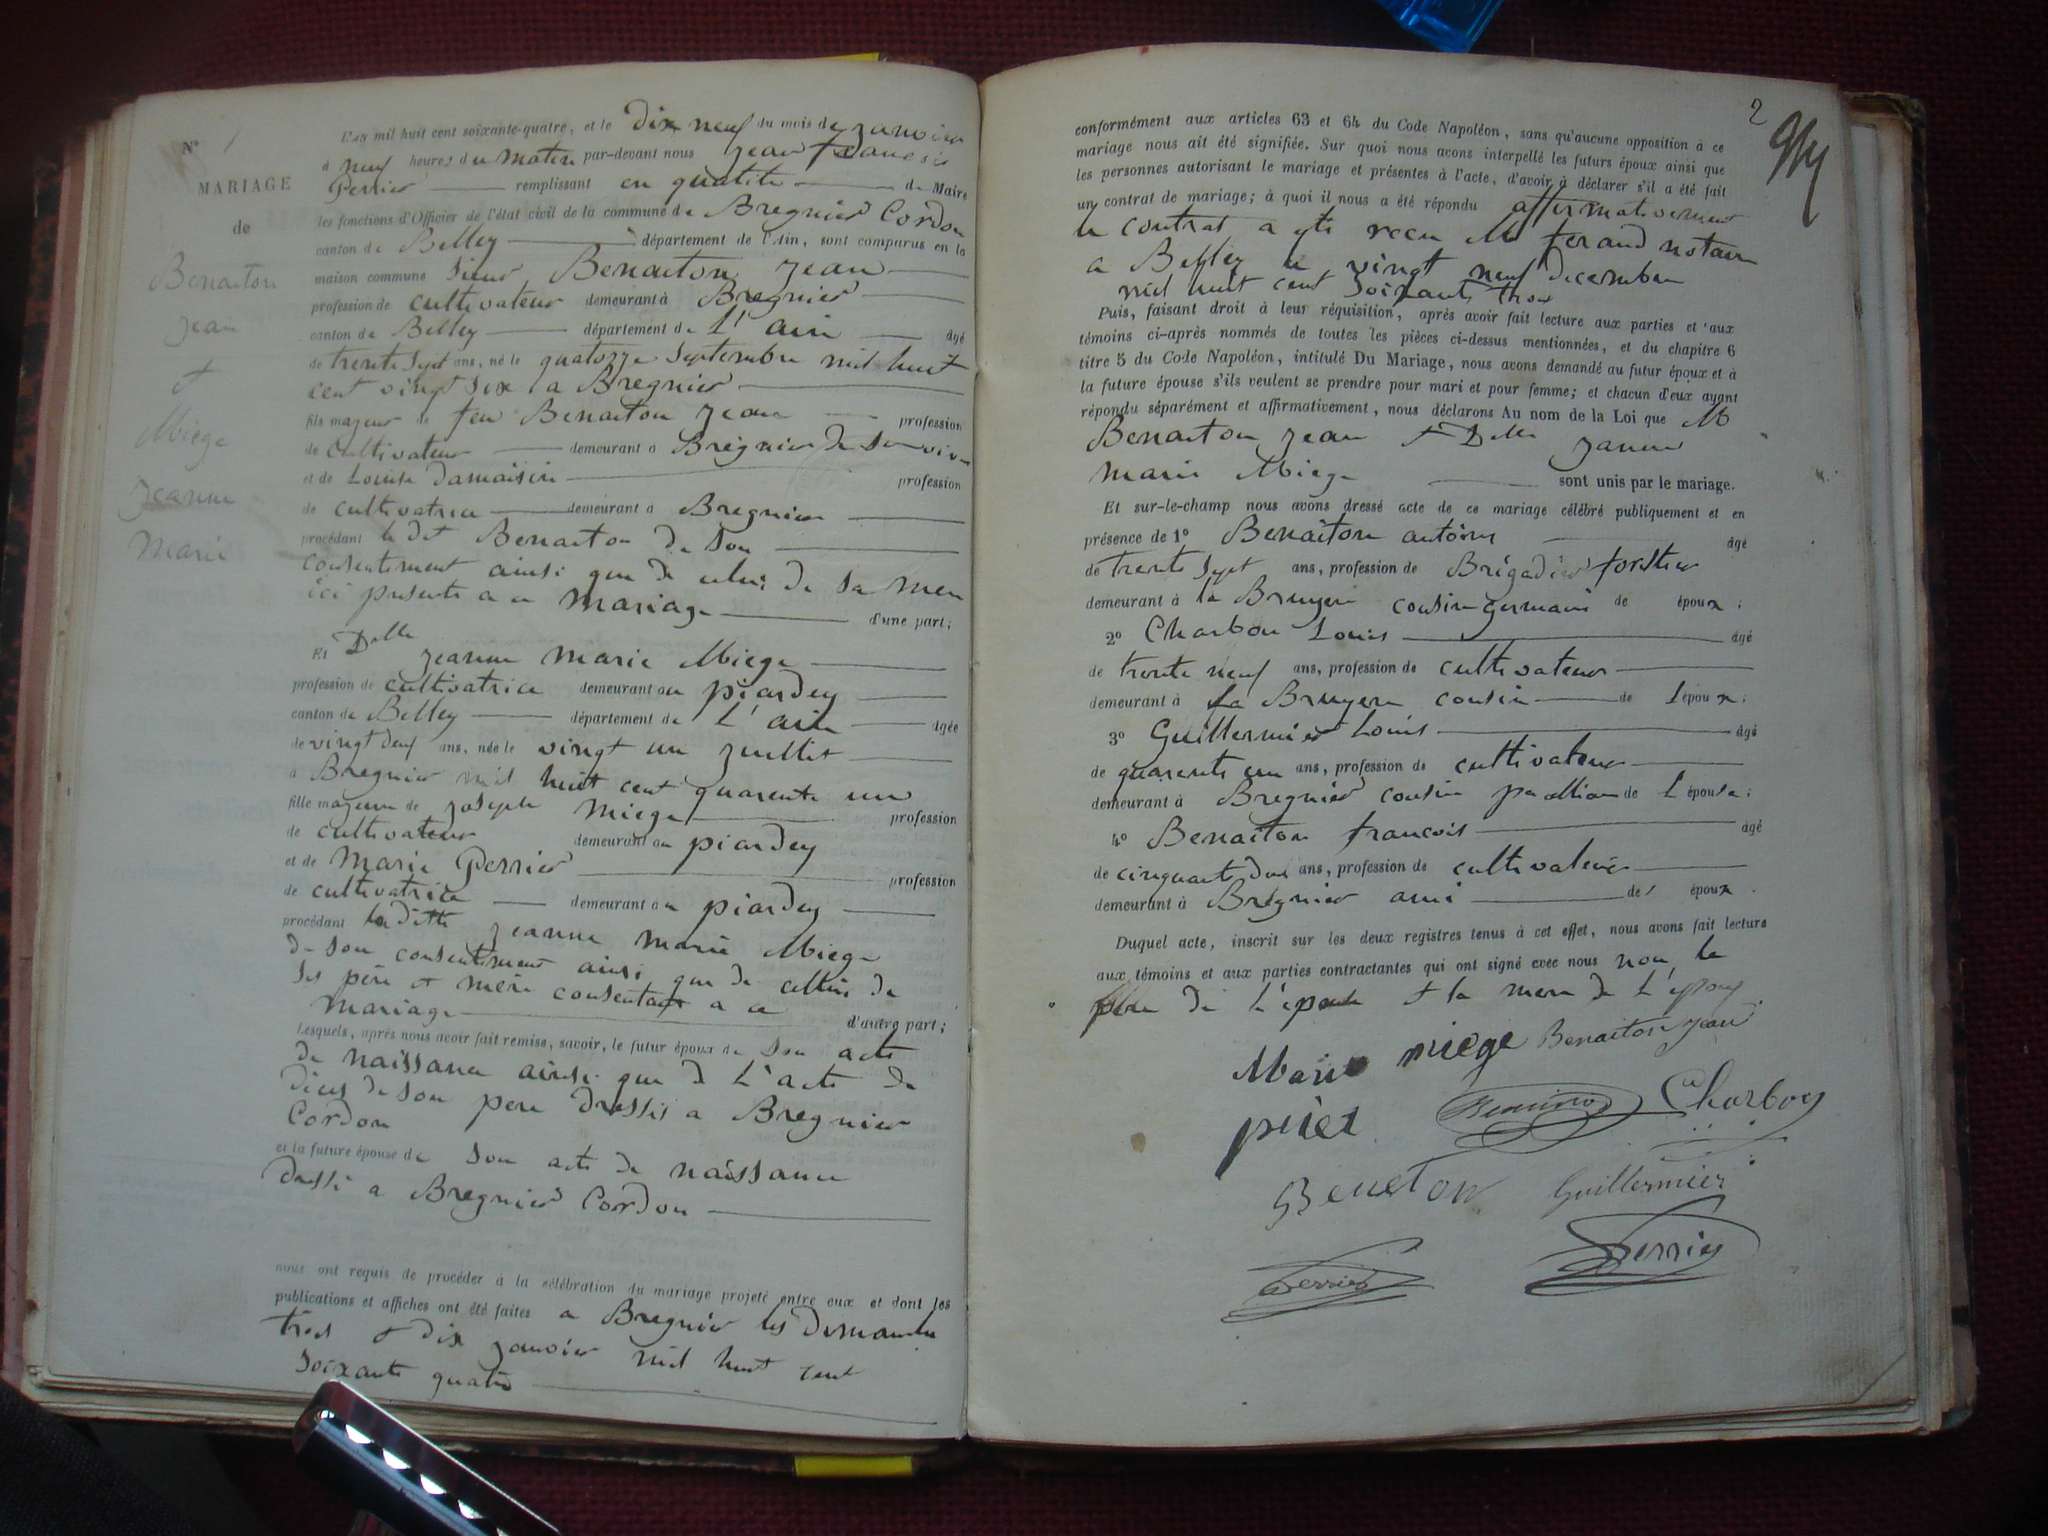 N° 1
MARIAGE
de
Benaiton
jean
et
Miege
jeanne
Marie
L'an mil huit cent soixante-quatre, et le dix neuf du mois de janvier
à neuf heures du matin par-devant nous jean francois
Perrier remplissant en qualité de Maire
les fonctions d'Officier de l'état civil de la commune de Bregnier Cordon
canton de Belley département de l'Ain, sont comparus en la
maison commune sieur Benaiton jean
profession de cultivateur demeurant à Bregnier
canton de Belley département de L'ain âgé
de trente sept ans, né le quatorze septembre mil huit
cent vingt six a Bregnier
fils majeur de feu Benaiton jean profession
de cultivateur demeurant a Bregnier de son vivan
et de Louise damaisin profession
de cultivatrice demeurant à Bregnier
procédant le dit Benaiton de son
consentement ainsi que de celui de sa mere
ici presente a ce mariage d'une part;
Et Delle jeanne marie Miege
profession de cultivatrice demeurant au piardey
canton de Belley département de L'ain âgée
de vingt deux ans, née le vingt un juillet
a Bregnier mil huit cent quarente un
fille majeure de joseph Miege profession
de cultivateur demeurant au piardey
et de Marie Perrier profession
de cultivatrice demeurant au piardey
procédant laditte jeanne marie Miege
de son consentement ainsi que de cellui de
ses père et mère consentant a ce
mariage d'autre part;
Lesquels, après nous avoir fait remise, savoir, le futur époux de son acte
de naissance ainsi que de L'acte de
déces de son pere dressés a Bregnier
Cordon
et la future épouse de son acte de naissance
dressé a Bregnier Cordon
nous ont requis de procéder à la célébration du mariage projeté entre eux et dont les
publications et affiches ont été faites a Bregnier les dimanche
trois et dix janvier mil huit cent
soixante quatre
2
conformément aux articles 63 et 64 du Code Napoléon, sans qu'aucune opposition à ce
mariage nous ait été signifiée. Sur quoi nous avons interpellé les futurs époux ainsi que
les personnes autorisant le mariage et présentes à l'acte, d'avoir à déclarer s'il a été fait
un contrat de mariage; à quoi il nous a été répondu affirmativement
le contrat a été recu Me ferand notaire
a Belley le vingt neuf decembre
mil huit cent soixante trois
Puis, faisant droit à leur réquisition, après avoir fait lecture aux parties et aux
témoins ci-après nommés de toutes les pièces ci-dessus mentionnées, et du chapitre 6
titre 5 du Code Napoléon, intitulé Du Mariage, nous avons demandé au futur époux et à
la future épouse s'ils veulent se prendre pour mari et pour femme; et chacun d'eux ayant
répondu séparément et affirmativement, nous déclarons Au nom de la Loi que M
Benaiton jean et Delle janne
marie Miege sont unis par le mariage.
Et sur-le-champ nous avons dressé acte de ce mariage célébré publiquement et en
présence de 1° Benaiton antoine âgé
de trente sept ans, profession de Brigadier forestier
demeurant à la Bruyere cousin germain de époux;
2° Charbon Louis âgé
de trente neuf ans, profession de cultivateur
demeurant à La Bruyere cousin de Lépoux;
3° Guillermier Louis âgé
de quarente un ans, profession de cultivateur
demeurant à Bregnier cousin de L'épouse;
4° Benaiton francois âgé
de cinquante deux ans, profession de cultivateur
demeurant à Bregnier ami de époux.
Duquel acte, inscrit sur les deux registres tenus à cet effet, nous avons fait lecture
aux témoins et aux parties contractantes qui ont signé avec nous non le
père de L'épouse et la mere de L'époux
Marie miege Benaiton jean
Charbon
Beneton Guillermier
Perrier Perrier